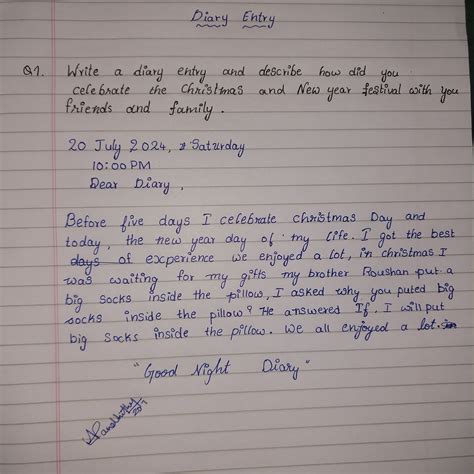 Diary Entry
Q1. Write a diary entry and describe how did you
celebrate the Christmas and New year festival with you
friends and family.
20 July 2024, Saturday
10:00 PM
Dear Diary,
Before five days I celebrate christmas Day and
today, the new year day of my life. I got the best
days of experience we enjoyed a lot, in christmas I
was waiting for my gifts my brother Roushan put a
big socks inside the pillow, I asked why you puted big
socks inside the pillow? He answered If, I will put
big socks inside the pillow. We all enjoyed a lot.
"Good Night Diary"